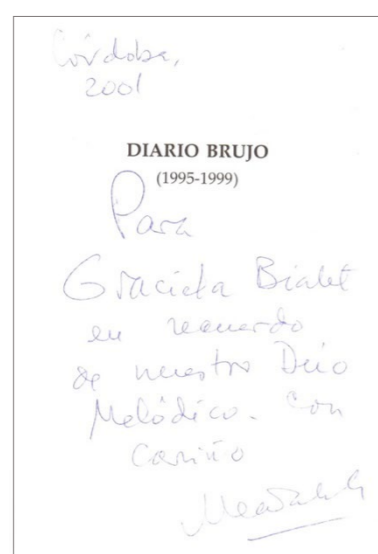 Córdoba,
2001
DIARIO BRUJO
(1995-1999)
Para
Graciela Bialet
en recuerdo
de nuestro Dúo
Melódico. Con
Cariño